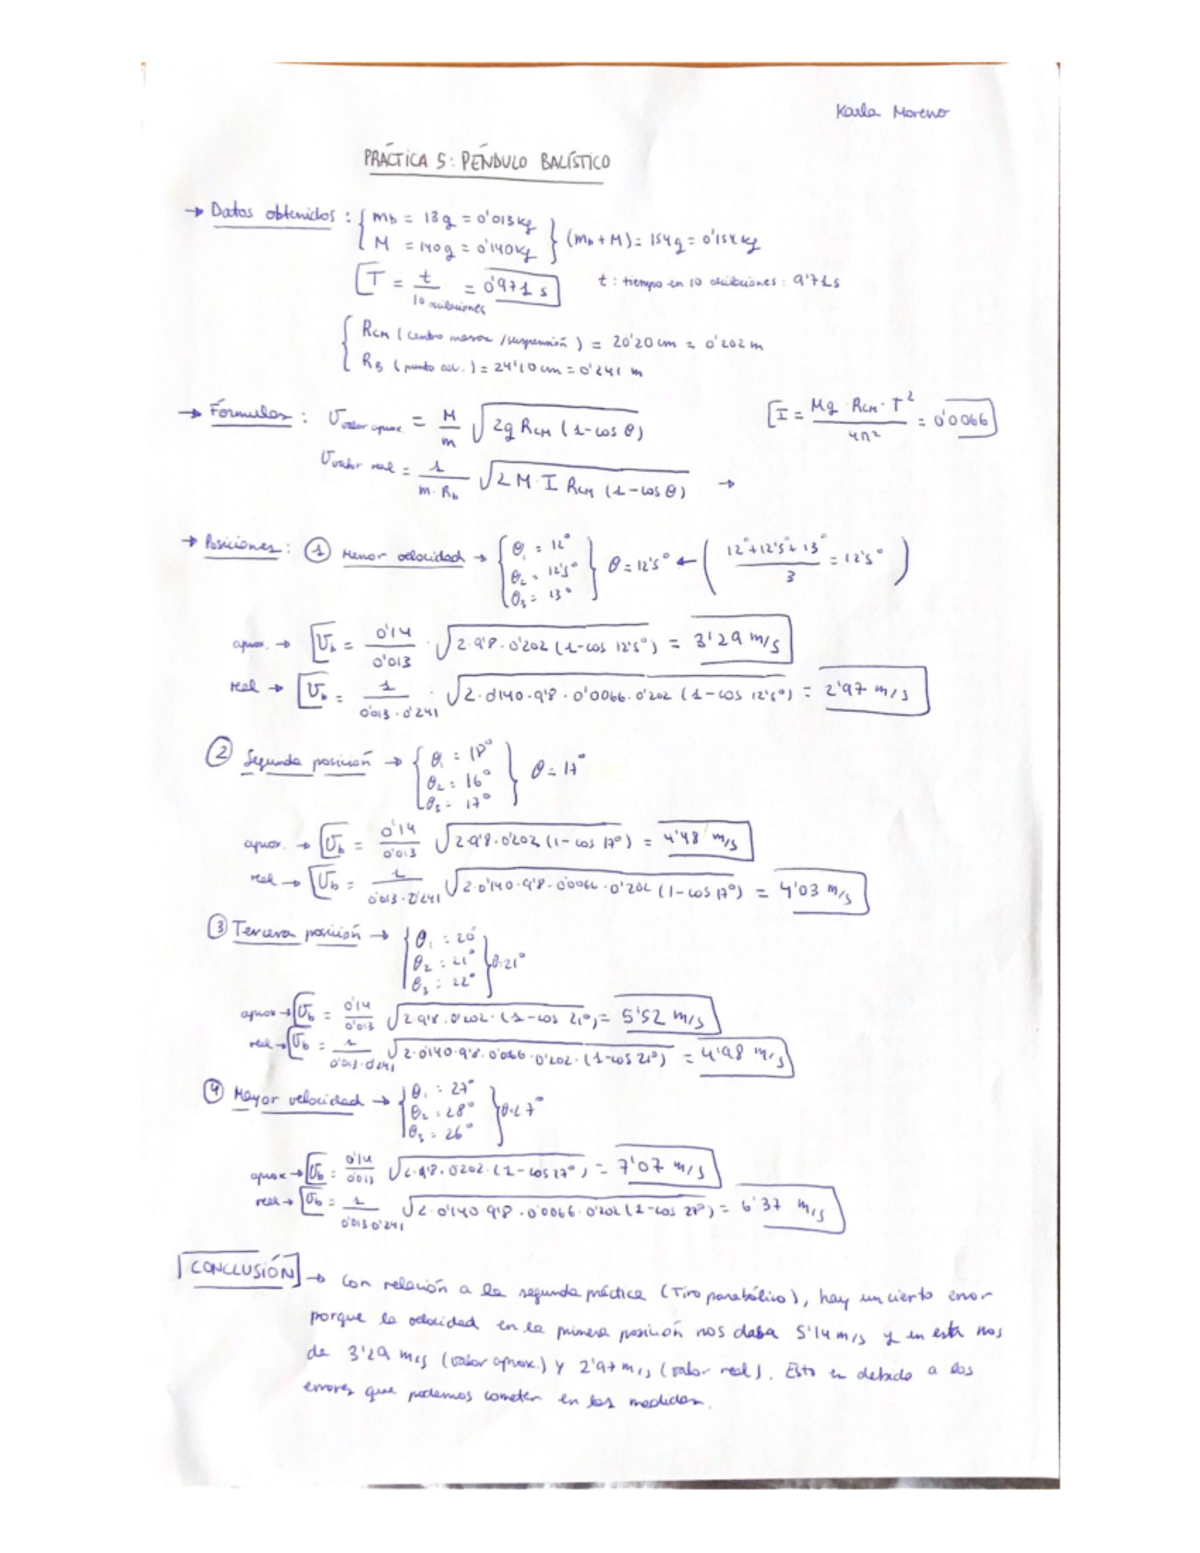 Karla Moreno
PRÁCTICA 5: PÉNDULO BALÍSTICO
→ Datos obtenidos: { mb = 13g = 0'013kg
M = 140g = 0'140kg } (mb + M) = 154g = 0'154kg
[T = t / 10 oscilaciones = 0'971 s] t: tiempo en 10 oscilaciones: 9'71s
{ RCM (centro masas /suspensión) = 20'20 cm = 0'202 m
RB (punto osc.) = 24'10 cm = 0'241 m
→ Fórmulas: Vvalor aprox. = M/m √(2g RCM (1-cos θ)) [I = Mg·RCM·T²/4π² = 0'0066]
Vvalor real = 1/(m·Rb) √(2 M·I RCM (1-cos θ)) →
→ Posiciones: ① Menor velocidad → { θ1 = 12° θ2 = 12'5° θ3 = 13° } θ = 12'5° ← ( (12°+12'5°+13°)/3 = 12'5° )
aprox. → [Vb = 0'14/0'013 · √(2·9'8·0'202 (1-cos 12'5°)) = 3'29 m/s]
real → [Vb = 1/(0'013·0'241) · √(2·0'140·9'8·0'0066·0'202 (1-cos 12'5°)) = 2'97 m/s]
② Segunda posición → { θ1 = 18° θ2 = 16° θ3 = 17° } θ = 17°
aprox. → [Vb = 0'14/0'013 √(2·9'8·0'202 (1-cos 17°)) = 4'48 m/s]
real → [Vb = 1/(0'013·0'241) √(2·0'140·9'8·0'0066·0'202 (1-cos 17°)) = 4'03 m/s]
③ Tercera posición → { θ1 = 20° θ2 = 21° θ3 = 22° } θ = 21°
aprox → [Vb = 0'14/0'013 √(2·9'8·0'202·(1-cos 21°)) = 5'52 m/s]
real → [Vb = 1/(0'013·0'241) √(2·0'140·9'8·0'0066·0'202·(1-cos 21°)) = 4'98 m/s]
④ Mayor velocidad → { θ1 = 27° θ2 = 28° θ3 = 26° } θ = 27°
aprox → [Vb = 0'14/0'013 √(2·9'8·0'202·(1-cos 27°)) = 7'07 m/s]
real → [Vb = 1/(0'013·0'241) √(2·0'140·9'8·0'0066·0'202 (1-cos 27°)) = 6'37 m/s]
CONCLUSIÓN → Con relación a la segunda práctica (Tiro parabólico), hay un cierto error
porque la velocidad en la primera posición nos daba 5'14 m/s y en esta nos
da 3'29 m/s (valor aprox.) y 2'97 m/s (valor real). Esto es debido a los
errores que podemos cometer en las medidas.